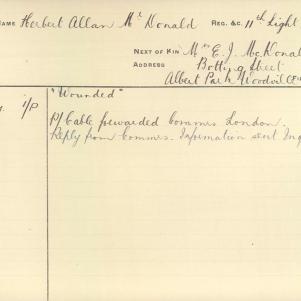 NAME Herbert Allan McDonald REG. &C. 11th Light
NEXT OF KIN Mrs E. J. McDona
ADDRESS Botting Street
Albert Park Woodvil
1/P "Wounded"
P/Cable forwarded Commrs London.
Reply from Commrs. Information sent Inq